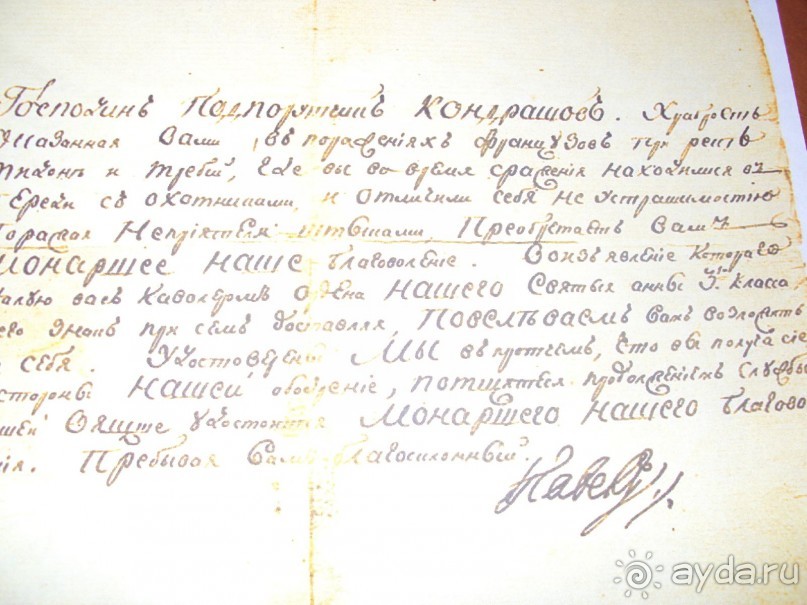 Господинъ Подпорутчикъ Кондрашовъ. Храбрость
оказанная Вами, въ пораженіяхъ французовъ при рекѣ
Тидонъ и Требіи, где вы во время сраженія находилися въ
переди съ охотниками, и отличили себя неустрашимостію
поражая Непріятеля штыками, Преобретаетъ Вамъ
Монаршее наше благоволеніе. Во изъявленіе котораго
жалую васъ Кавалеромъ ордена нашего Святыя анны 3го класса,
его знакъ при семъ доставляя, Повелѣваемъ Вамъ возложить
на себя. Удостоверены Мы въ протчемъ, что вы получа сіе
стороны нашей ободреніе, потщитеся продолженіемъ службы
вящше удостоится Монаршего нашего благово
нія. Пребывая Вамъ благосклонный.
Павелъ
ayda.ru